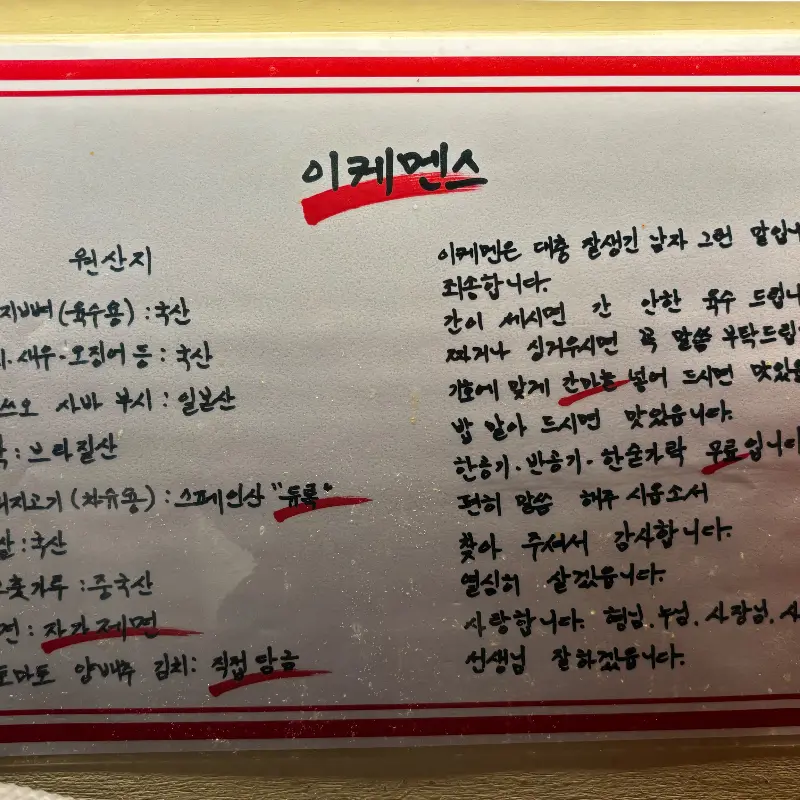 이케멘스
원산지
지뼈(육수용) : 국산
새우·오징어 등 : 국산
쓰오 사바 부시 : 일본산
: 브라질산
지고기(차슈용) : 스페인산 "듀록"
: 국산
춧가루 : 중국산
면 : 자가제면
토마토 양배추 김치 : 직접 담금
이케멘은 대충 잘생긴 남자 그런 말입니
죄송합니다.
간이 세시면 간 안한 육수 드립니
짜거나 싱거우시면 꼭 말씀 부탁드립
기호에 맞게 간마늘 넣어 드시면 맛있
밥 말아 드시면 맛있습니다.
한공기·반공기·한숟가락 무료입니다
편히 말씀 해주시옵소서
찾아 주셔서 감사합니다.
열심히 살겠습니다.
사랑합니다. 형님, 누님, 사장님, 사
선생님 잘하겠습니다.